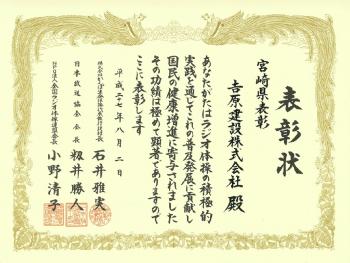 表彰状
宮崎県表彰
吉原建設株式会社 殿
あなたがたはラジオ体操の積極的
実践を通してこれの普及発展に貢献し
国民の健康増進に寄与されました
その功績は極めて顕著でありますので
ここに表彰します
平成二十七年八月二日
株式会社かんぽ生命保険代表執行役社長
石井雅実
日本放送協会会長
籾井勝人
NPO法人全国ラジオ体操連盟会長
小野清子